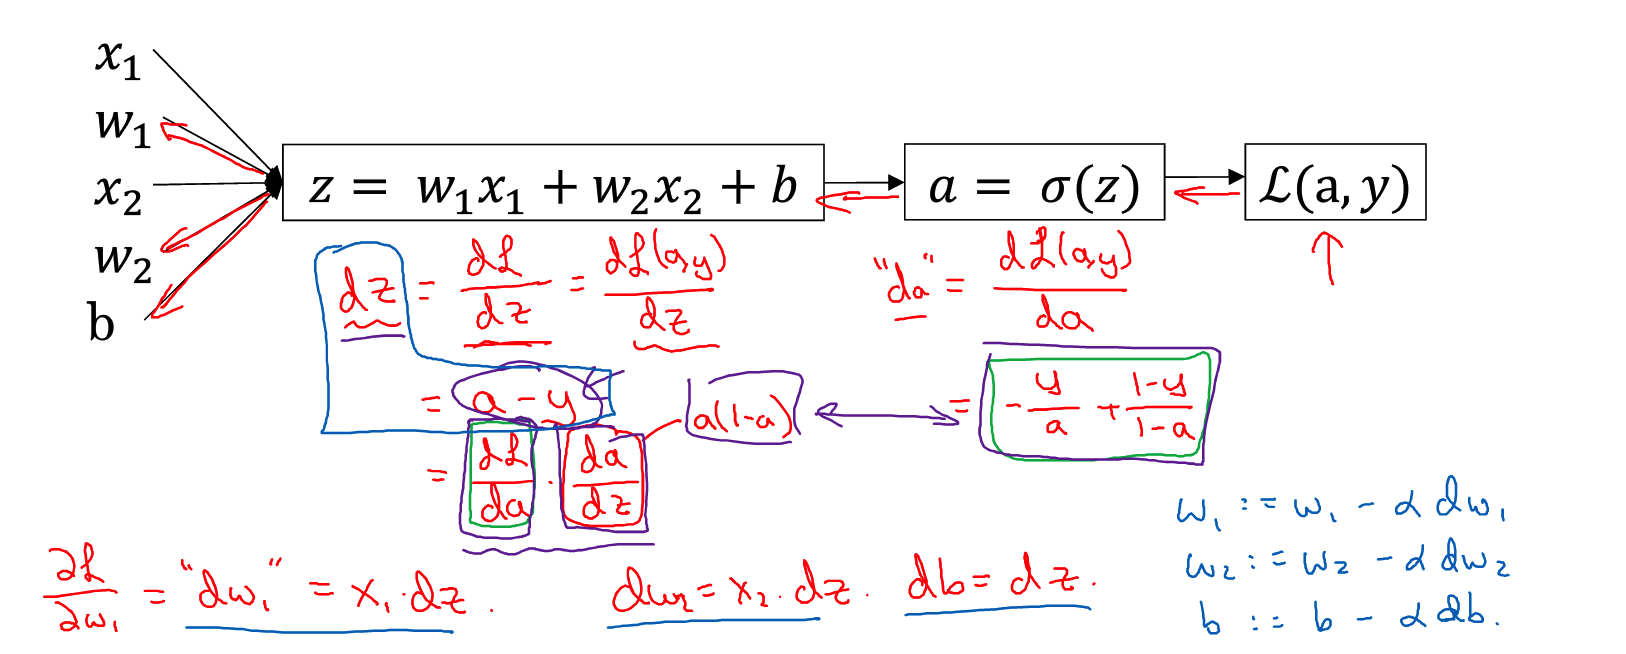 x₁
w₁
x₂
w₂
b
z = w₁x₁ + w₂x₂ + b
a = σ(z)
ℒ(a, y)
dz = dℒ/dz = dℒ(a,y)/dz
"da" = dℒ(a,y)/da
= a - y
a(1-a)
= -y/a + 1-y/1-a
= dℒ/da · da/dz
∂ℒ/∂w₁ = "dw₁" = x₁·dz.
dw₂ = x₂·dz.
db = dz.
w₁ := w₁ - α dw₁
w₂ := w₂ - α dw₂
b := b - α db.